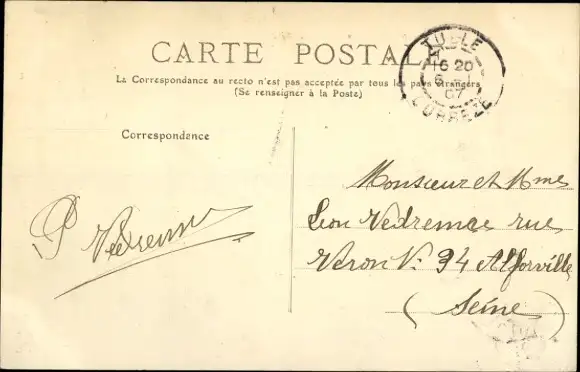 CARTE POSTALE
La Correspondance au recto n'est pas acceptée par tous les pays étrangers
(Se renseigner à la Poste)
TULLE
16 20
6 - 1
07
CORREZE
Correspondance
P Vedrenne
Monsieur et Mme
Leon Vedrenne rue
Veron N: 34 Alforville
(Seine)